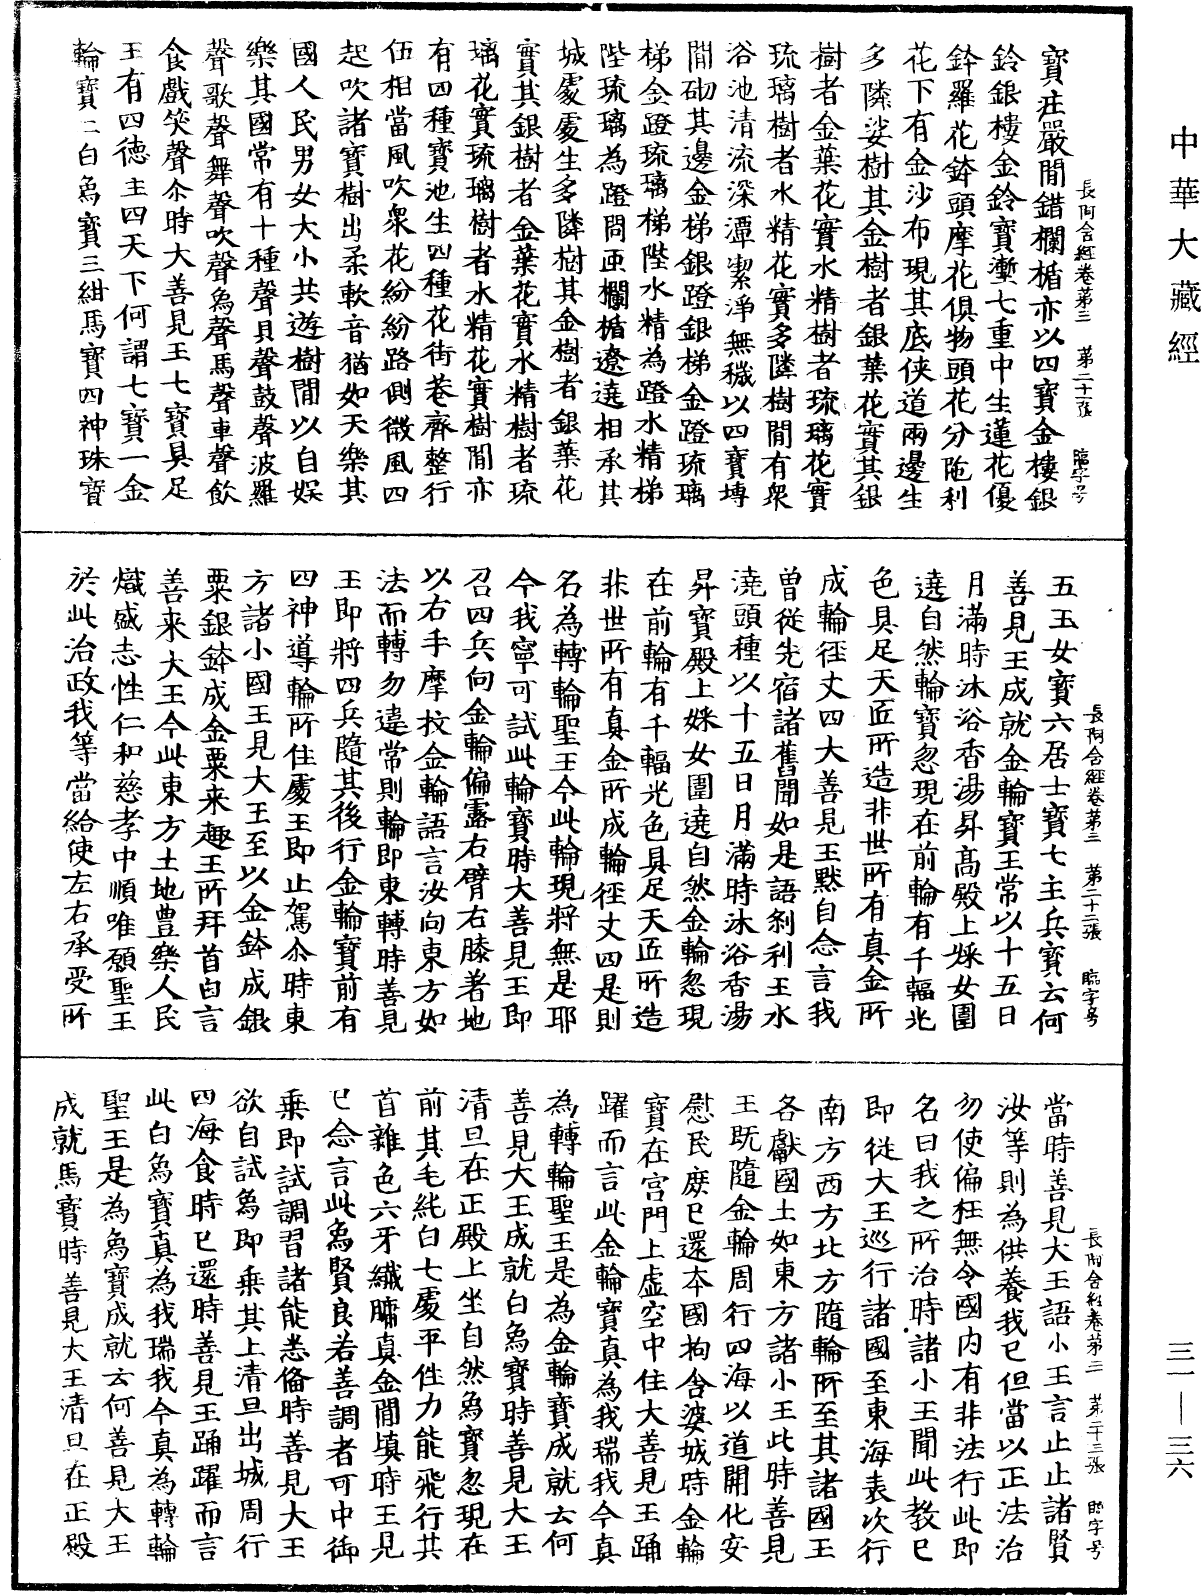 中華大藏經
三一—三六
長阿含經卷第三　第二十一張　臨字号
寶庄嚴間錯欄楯亦以四寶金樓銀
鈴銀樓金鈴寶壍七重中生蓮花優
鉢羅花鉢頭摩花俱物頭花分陁利
花下有金沙布現其底俠道兩邊生
多隣娑樹其金樹者銀葉花實其銀
樹者金葉花實水精樹者琉璃花實
琉璃樹者水精花實多隣樹間有衆
浴池清流深潭潔淨無穢以四寶塼
間砌其邊金梯銀蹬銀梯金蹬琉璃
梯金蹬琉璃梯陛水精為蹬水精梯
陛琉璃為蹬周匝欄楯遼遶相承其
城處處生多隣樹其金樹者銀葉花
實其銀樹者金葉花實水精樹者琉
璃花實琉璃樹者水精花實樹間亦
有四種寶池生四種花街巷齊整行
伍相當風吹衆花紛紛路側微風四
起吹諸寶樹出柔軟音猶如天樂其
國人民男女大小共遊樹間以自娛
樂其國常有十種聲貝聲鼓聲波羅
聲歌聲舞聲吹聲烏聲馬聲車聲飲
食戲笑聲尒時大善見王七寶具足
王有四德主四天下何謂七寶一金
輪寶二白烏寶三紺馬寶四神珠寶
長阿含經卷第三　第二十二張　臨字号
五玉女寶六居士寶七主兵寶云何
善見王成就金輪寶王常以十五日
月滿時沐浴香湯昇高殿上婇女圍
遶自然輪寶忽現在前輪有千輻光
色具足天匠所造非世所有真金所
成輪徑丈四大善見王默自念言我
曾從先宿諸舊聞如是語刹利王水
澆頭種以十五日月滿時沐浴香湯
昇寶殿上婇女圍遶自然金輪忽現
在前輪有千輻光色具足天匠所造
非世所有真金所成輪徑丈四是則
名為轉輪聖王今此輪現將無是耶
今我寧可試此輪寶時大善見王即
召四兵向金輪偏露右臂右膝著地
以右手摩抆金輪語言汝向東方如
法而轉勿違常則輪即東轉時善見
王即將四兵隨其後行金輪寶前有
四神導輪所住處王即止駕尒時東
方諸小國王見大王至以金鉢成銀
粟銀鉢成金粟来趣王所拜首白言
善来大王今此東方土地豊樂人民
熾盛志性仁和慈孝中順唯願聖王
於此治政我等當給使左右承受所
長阿含經卷第三　第二十三張　臨字号
當時善見大王語小王言止止諸賢
汝等則為供養我已但當以正法治
勿使偏枉無令國内有非法行此即
名曰我之所治時諸小王聞此教已
即從大王巡行諸國至東海表次行
南方西方北方隨輪所至其諸國王
各獻國土如東方諸小王此時善見
王既隨金輪周行四海以道開化安
慰民庶已還本國拘含婆城時金輪
寶在宫門上虛空中住大善見王踊
躍而言此金輪寶真為我瑞我今真
為轉輪聖王是為金輪寶成就云何
善見大王成就白烏寶時善見大王
清旦在正殿上坐自然烏寶忽現在
前其毛純白七處平住力能飛行其
首雜色六牙纎𦟛真金間填時王見
已念言此烏賢良若善調者可中御
乗即試調習諸能悉俻時善見大王
欲自試烏即乗其上清旦出城周行
四海食時已還時善見王踊躍而言
此白烏寶真為我瑞我今真為轉輪
聖王是為烏寶成就云何善見大王
成就馬寶時善見大王清旦在正殿